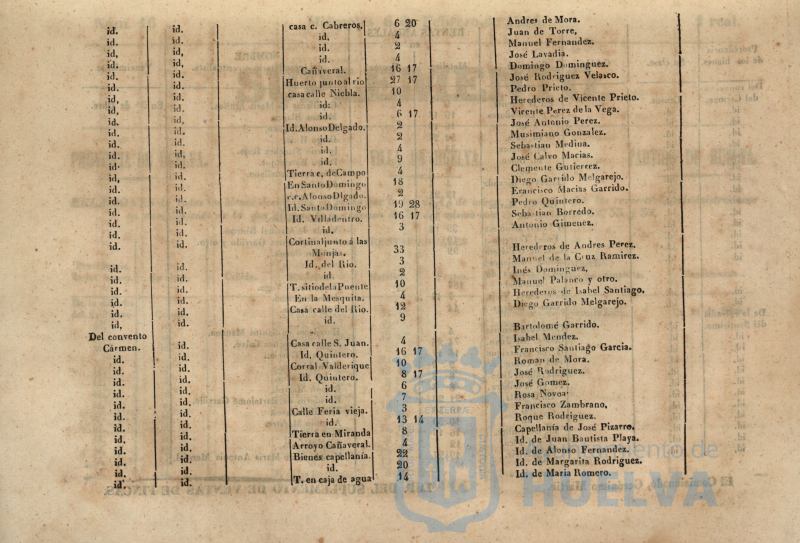 id. id. casa c. Cabreros. 6 20 Andres de Mora.
id. id. id. 4 Juan de Torre,
id. id. id. 2 Manuel Fernandez.
id. id. id. 4 José Lavadia.
id, id. Cañaveral. 16 17 Domingo Dominguez.
id. id. Huerto junto al rio 27 17 José Rodriguez Velasco.
id, id. casa calle Niebla. 10 Pedro Prieto.
id, id. id. 4 Herederos de Vicente Prieto.
id, id. id. 6 17 Vicente Perez de la Vega.
id. id. Id. Alonso Delgado. 2 José Antonio Perez.
id. id. id. 2 Musimiano Gonzalez.
id. id. id. 4 Sebastian Medina.
id. id. id. 9 José Calvo Macias.
id. id. Tierra c, de Campo 4 Clemente Gutierrez.
id. id. En Santo Domingo 18 Diego Garrido Melgarejo.
id. id. c.c. Alonso Dlgado. 2 Francisco Macias Garrido.
id. id. Id. Santo Domingo 19 28 Pedro Quintero.
id. id. Id. Villadentro. 16 17 Sebastian Borredo.
id. id. id. 3 Antonio Gimenez.
id. id. Cortinal junto á las
Monjas. 33 Herederos de Andres Perez.
id. id. Id. del Rio. 3 Manuel de la Cruz Ramirez.
id. id. id. 2 Inés Dominguez,
id. id. T. sitio de la Puente 10 Manuel Palanco y otro.
id. id. En la Mesquita. 4 Herederos de Isabel Santiago.
id. id. Casa calle del Rio. 12 Diego Garrido Melgarejo.
id, id. id. 9 Bartolomé Garrido.
Del convento
Cármen. id. Casa calle S. Juan. 4 Isabel Mendez.
id. id. Id. Quintero. 16 17 Francisco Santiago Garcia.
id. id. Corral Valderique 10 Roman de Mora.
id. id. Id. Quintero. 8 17 José Rodriguez.
id. id. id. 6 José Gomez.
id. id. id. 7 Rosa Novoa.
id. id. Calle Feria vieja. 3 Francisco Zambrano,
id. id. id. 13 14 Roque Rodriguez.
id. id. Tierra en Miranda 8 Capellanía de José Pizarro.
id. id. Arroyo Cañaveral. 4 Id. de Juan Bautista Playa.
id. id. Bienes capellanía. 22 Id. de Alonso Fernandez.
id. id. id. 20 Id. de Margarita Rodriguez.
id. id. T. en caja de agua 14 Id. de Maria Romero.
HUELVA